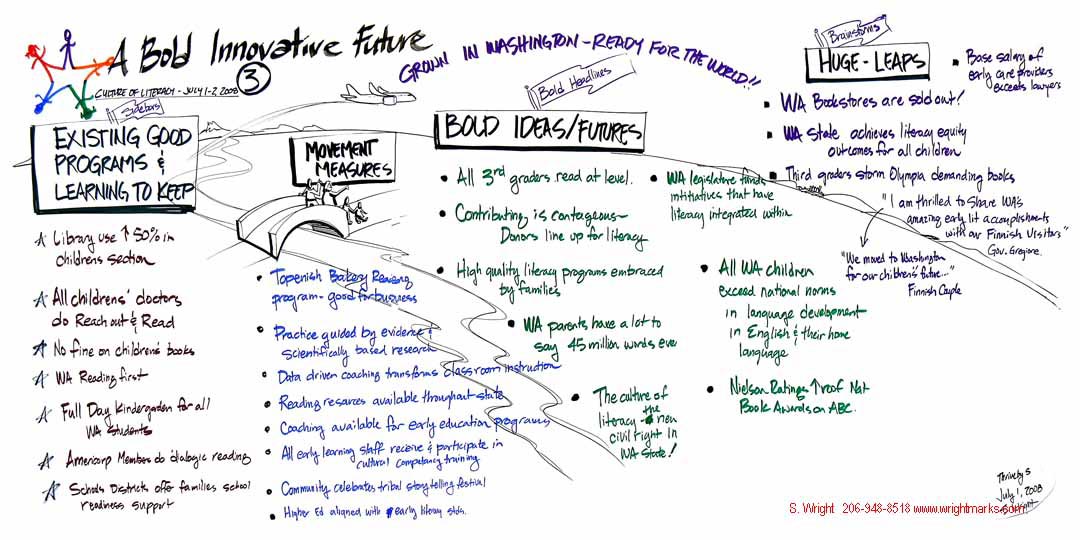 A Bold Innovative Future
3
CULTURE OF LITERACY - JULY 1-2, 2008
GROWN IN WASHINGTON - READY FOR THE WORLD!!
Sidebars
EXISTING GOOD
PROGRAMS &
LEARNING TO KEEP
Library use ↑ 50% in
childrens section
All childrens' doctors
do Reach out & Read
No fine on childrens' books
WA Reading first
Full Day Kindergarden for all
WA students
Americorp Members do dialogic reading
Schools Districts offer families school
readiness support
MOVEMENT
MEASURES
Topenish Bakery Reading
program - good for business
Practice guided by evidence &
scientifically based research
Data driven coaching transforms classroom instruction
Reading resources available throughout state
Coaching available for early education programs
All early learning staff receive & participate in
cultural competency training
Community celebrates tribal story telling festival
Higher Ed aligned with early literacy stds.
Bold Headlines
BOLD IDEAS/FUTURES
All 3rd graders read at level.
Contributing is contageous -
Donors line up for literacy
High quality literacy programs embraced
by families
WA parents have a lot to
say 45 million words ever
The culture of
literacy - the new
civil right in
WA State!
WA legislature funds
intitiatives that have
literacy integrated within
All WA children
exceed national norms
in language development
in English & their home
language
Nielson Ratings ↑ roof Nat
Book Awards on ABC.
Brainstorms
HUGE-LEAPS
Base salary of
early care providers
exceeds lawyers
WA Bookstores are sold out!
WA State achieves literacy equity
outcomes for all children
Third graders storm Olympia demanding books
"I am thrilled to share WA's
amazing early lit accomplishments
with our Finnish Visitors"
Gov. Gregiore
"We moved to Washington
for our children's future..."
Finnish Couple
Thrive by 5
July 1, 2008
S. Wright 206-948-8518 www.wrightmarks.com